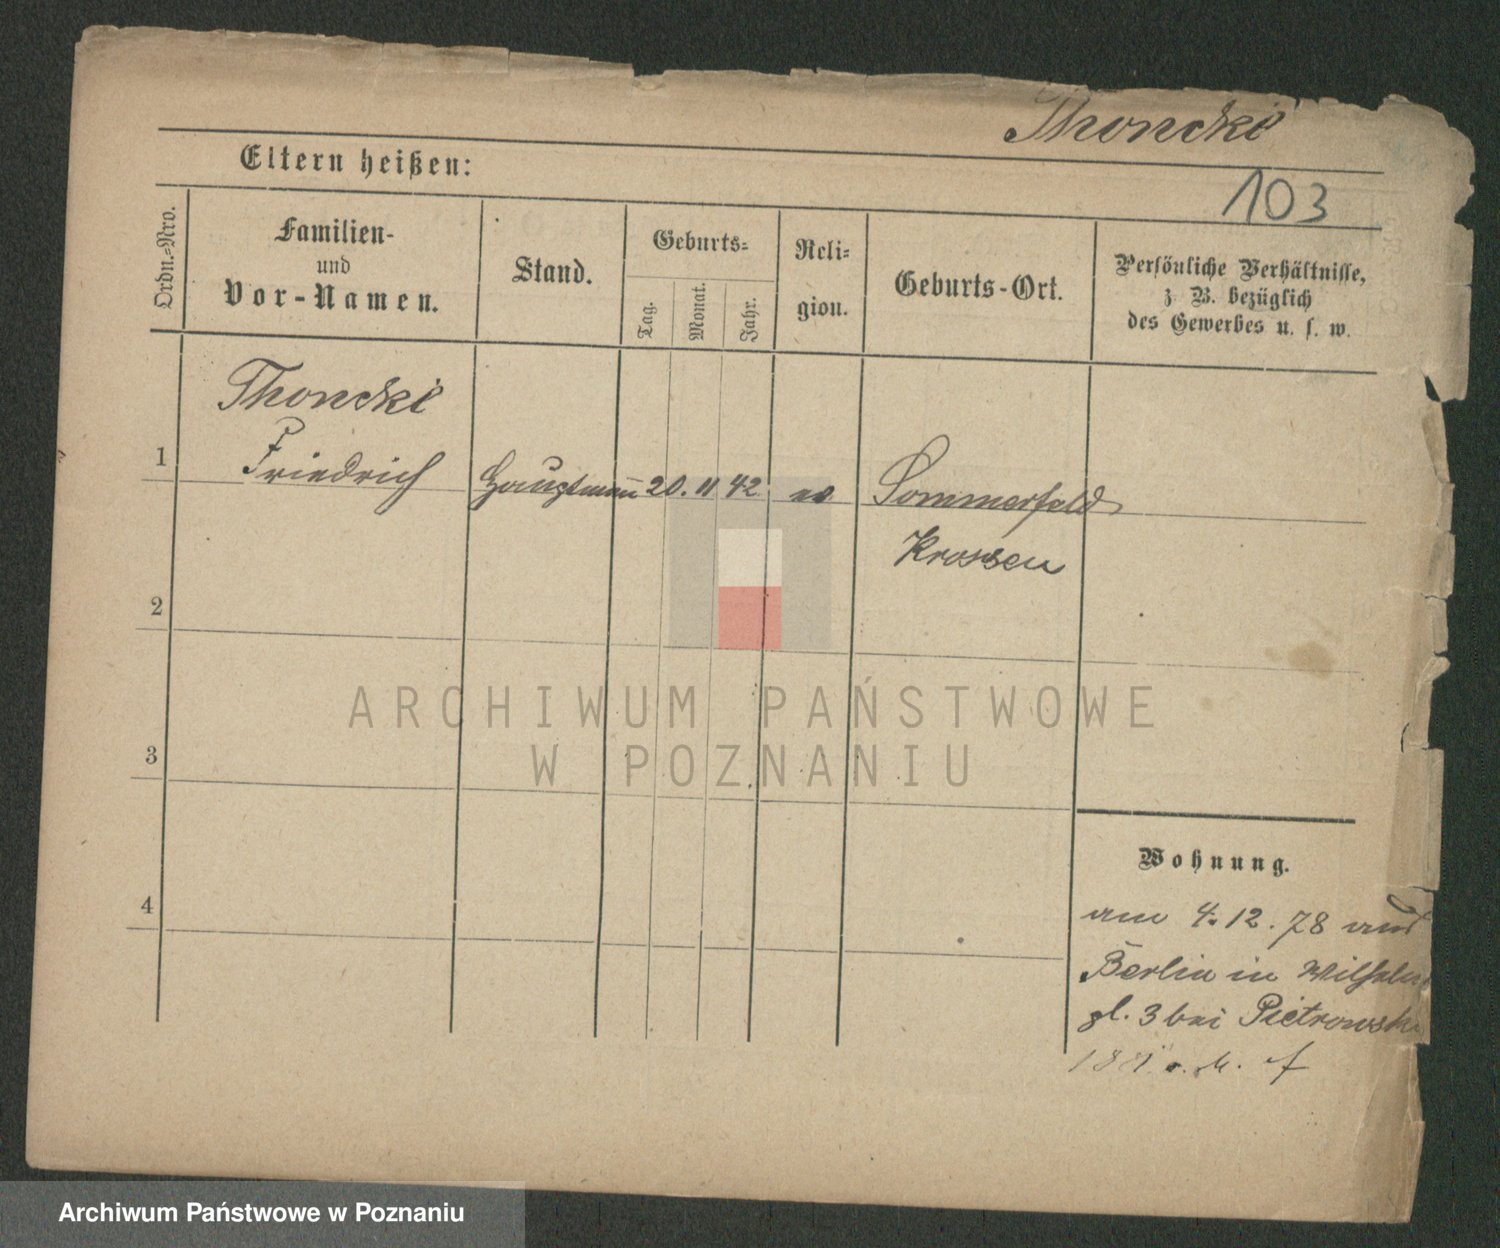 Thoncke
103
Eltern heißen:
Ordn.-Nro.
Familien-
und
Vor-Namen.
Stand.
Geburts-
Tag.
Monat.
Jahr.
Reli-
gion.
Geburts-Ort.
Persönliche Verhältnisse,
z. B. bezüglich
des Gewerbes u. s. w.
Thoncke
1 Friedrich Hauptmann 20. 11 42 ev. Sommerfeld
Krossen
2
3
4
Wohnung.
am 4. 12. 78 aus
Berlin in Wilhelm
pl. 3 bei Pietrowski
ARCHIWUM PAŃSTWOWE
W POZNANIU
Archiwum Państwowe w Poznaniu